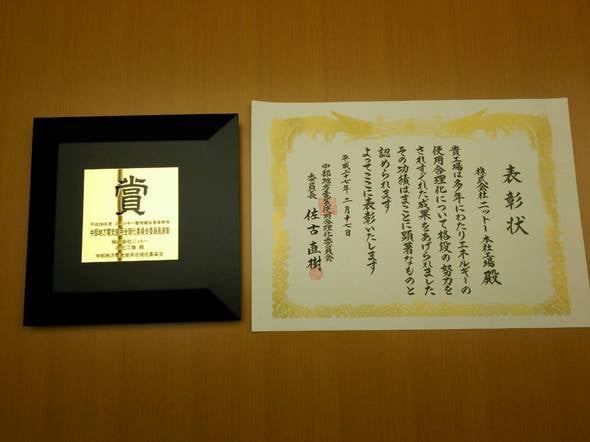 賞
中部地方電気使用合理化委員会委員長表彰
株式会社ニットー
本社工場 殿
中部地方電気使用合理化委員会
表彰状
株式会社ニットー本社工場 殿
貴工場は多年にわたりエネルギーの
使用合理化について格段の努力を
されすぐれた成果をあげられました
その功績はまことに顕著なものと
認められます
よってここに表彰いたします
平成二十七年 二月十七日
中部地方電気使用合理化委員会
委員長 佐古直樹